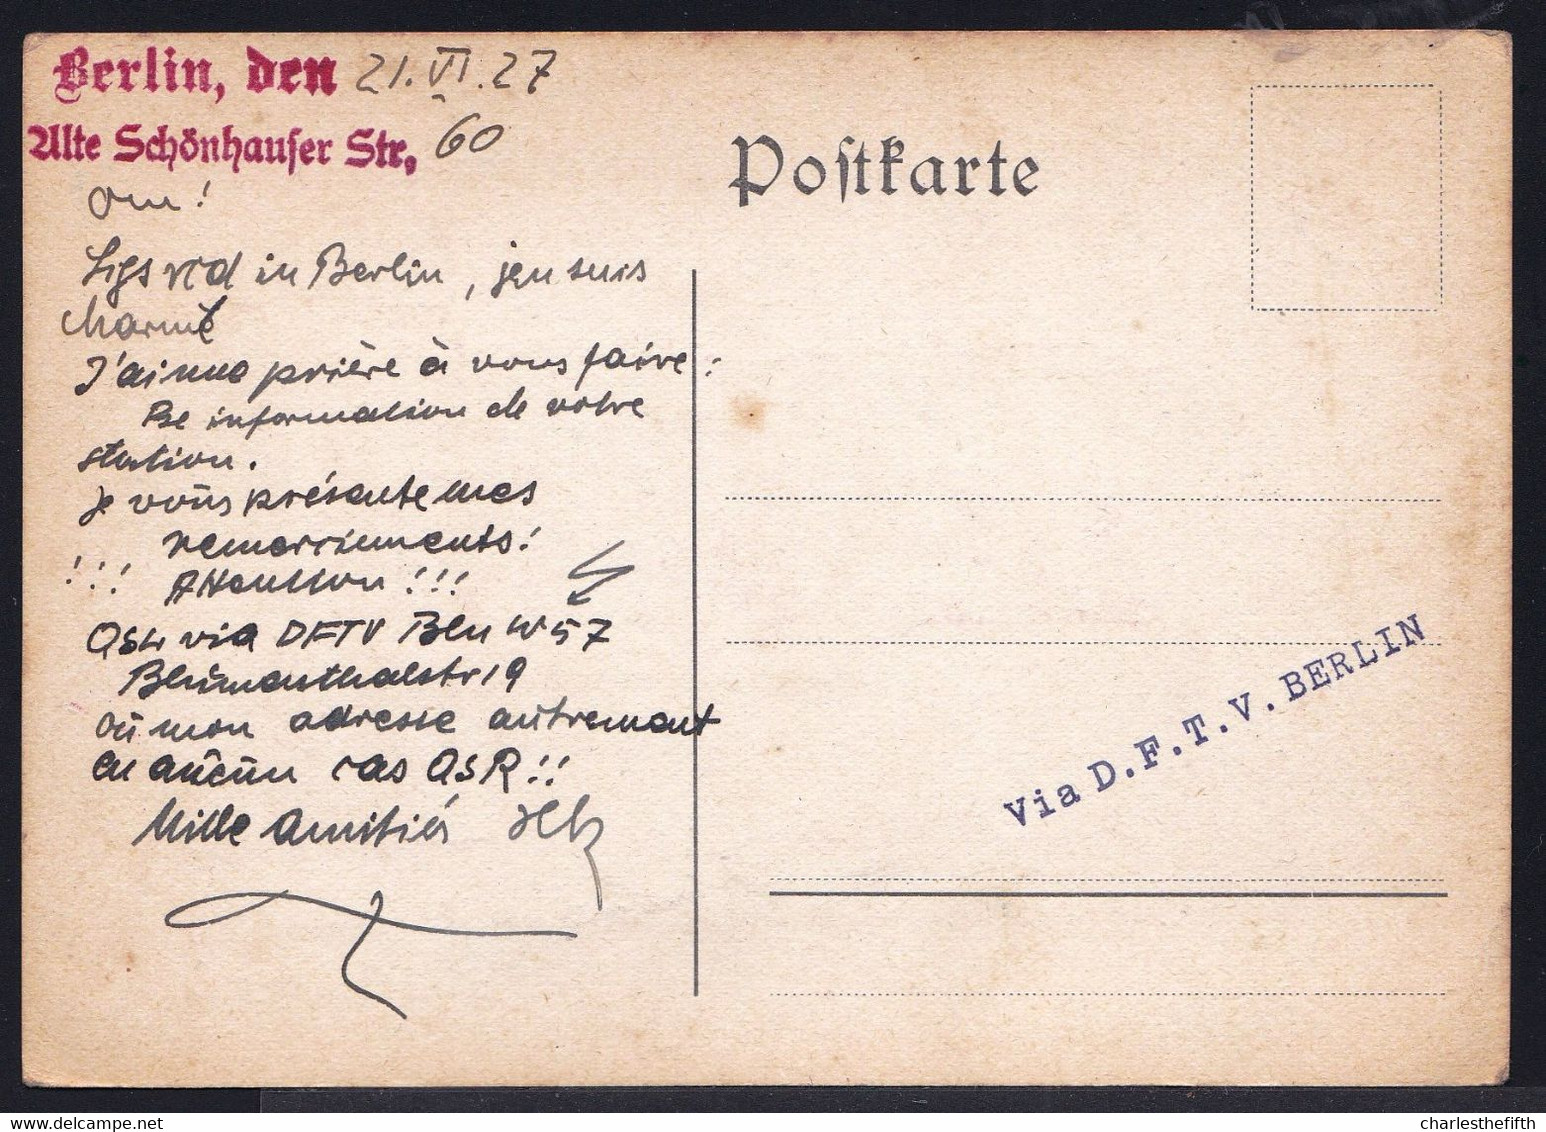 Berlin, den 21.VI.27
Alte Schönhauser Str. 60
om!
Sigs rcd in Berlin, jen suis
charmé
J'ai une prière à vous faire:
Pse information de votre
station.
je vous présente mes
remerciements!
!!! Attention!!!
QSL via DFTV Bln W57
Blumenthalstr 19
ou mon adresse autrement
en aucun cas QSR!!
Mille amitiés
Postkarte
Via D.F.T.V. BERLIN
charlesthefifth